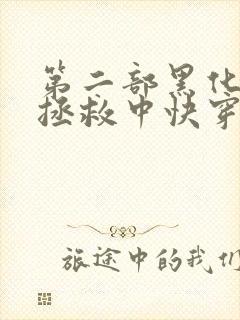 第二部黑化
拯救中快穿
旅途中的我们